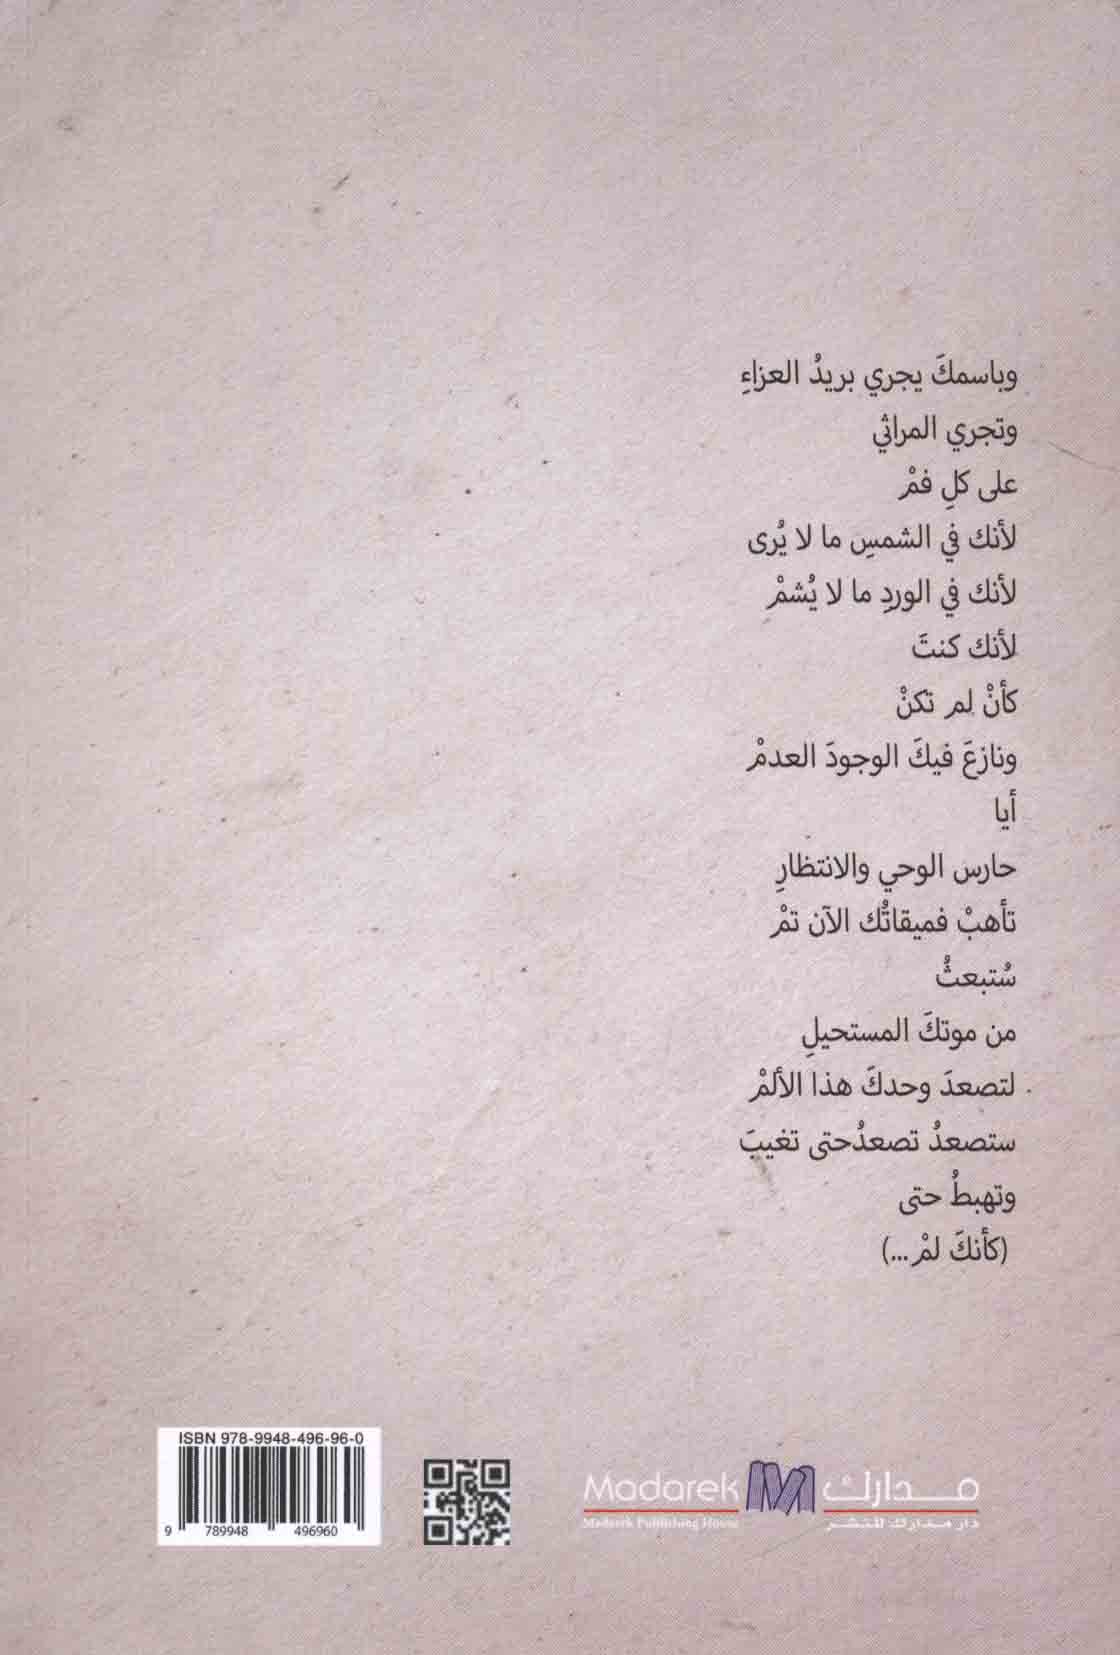 وباسمكَ يجري بريدُ العزاءِ
وتجري المراثي
على كلِ فمْ
لأنك في الشمسِ ما لا يُرى
لأنك في الوردِ ما لا يُشمْ
لأنك كنتَ
كأنْ لم تكنْ
ونازعَ فيكَ الوجودَ العدمْ
أيا
حارس الوحي والانتظارِ
تأهبْ فميقاتُك الآن تمْ
سُتبعثُ
من موتكَ المستحيلِ
لتصعدَ وحدكَ هذا الألمْ
ستصعدُ تصعدُحتى تغيبَ
وتهبطُ حتى
(كأنكَ لمْ...)
ISBN 978-9948-496-96-0
9 789948 496960
Madarek مدارك
Madarek Publishing House دار مدارك للنشر